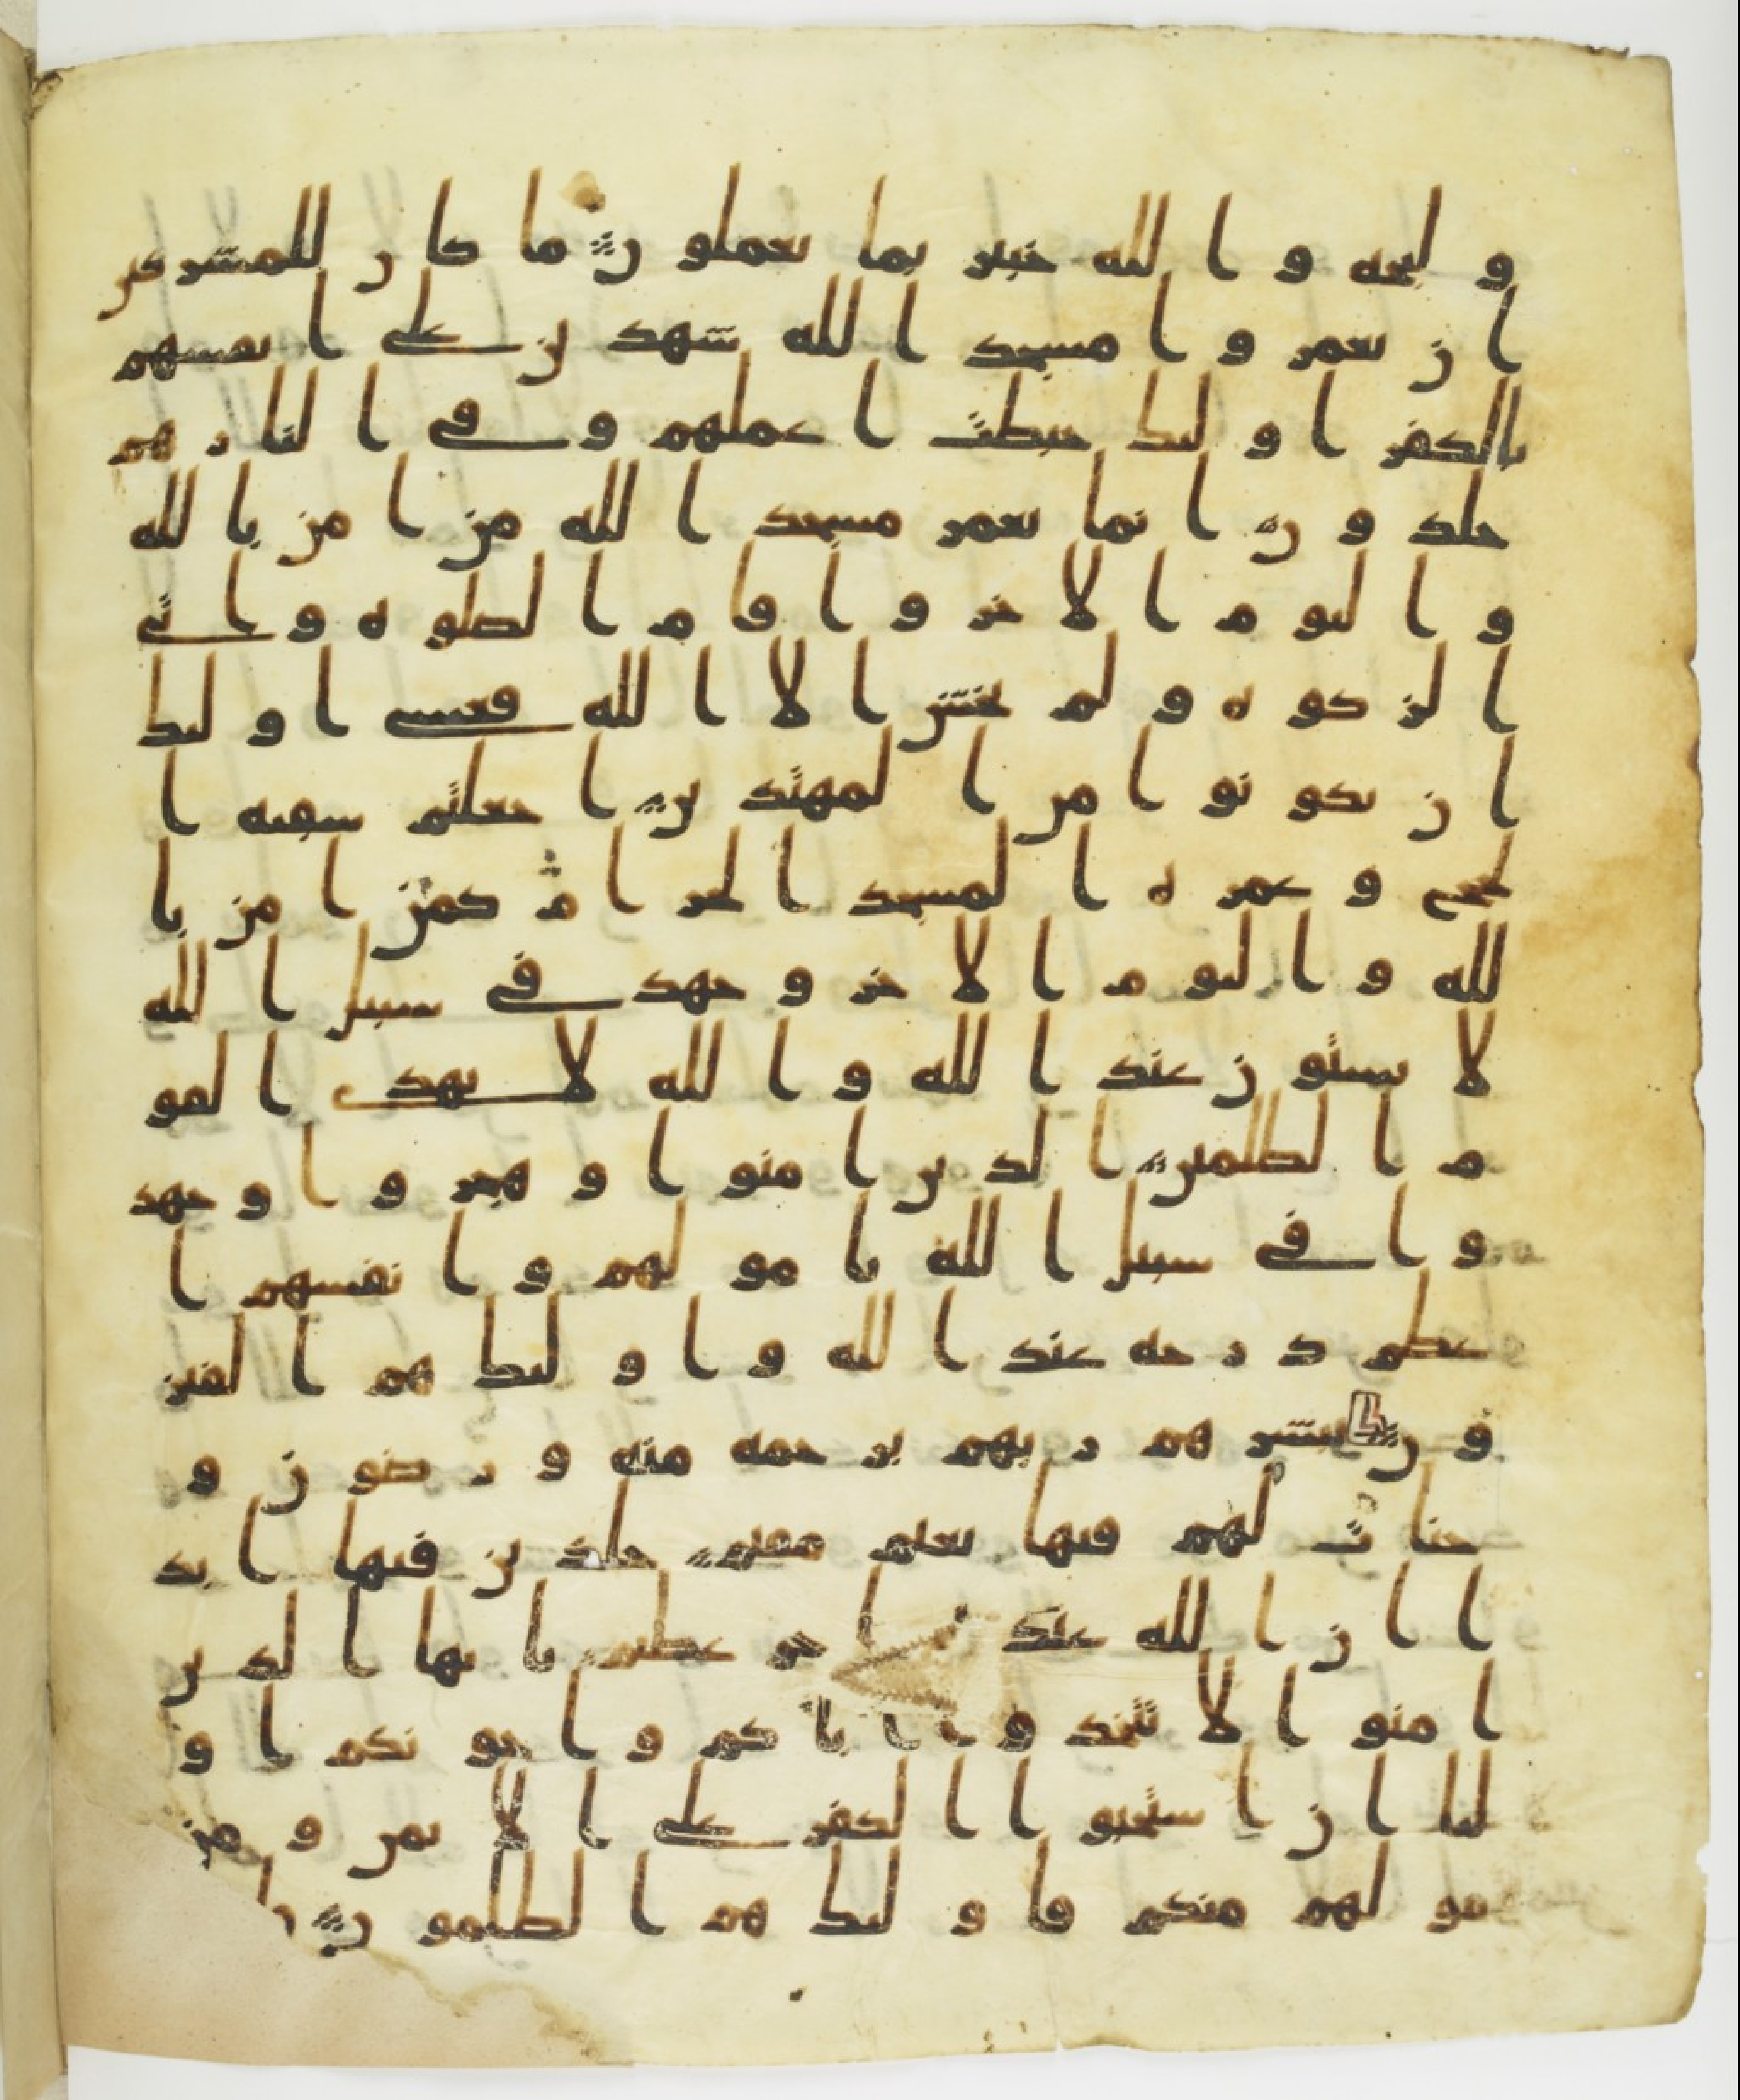 وليجه والله خبير بما تعملون ما كان للمشركين
ان يعمروا مسجد الله شهدين على انفسهم
بالكفر اوليك حبطت اعملهم وفي النار هم
خلدون انما يعمر مسجد الله من امن بالله
واليوم الاخر واقام الصلوه واتى
الزكوه ولم يخش الا الله فعسى اوليك
ان يكونوا من المهتدين اجعلتم سقيه ا
لحج وعمره المسجد الحرام كمن امن با
لله واليوم الاخر وجهد في سبيل الله
لا يستون عند الله والله لا يهدي القو
م الظلمين الذين امنوا وهجروا وجهد
وا في سبيل الله بامولهم وانفسهم ا
عظم درجه عند الله واوليك هم الفيز
ون يبشرهم ربهم برحمه منه ورضون و
جنات لهم فيها نعيم مقيم خلدين فيها ابد
ا ان الله عنده اجر عظيم يايها الذين
امنوا لا تتخذوا اباكم واخونكم او
ليا ان استحبوا الكفر على الايمن ومن
يتولهم منكم فاوليك هم الظلمون